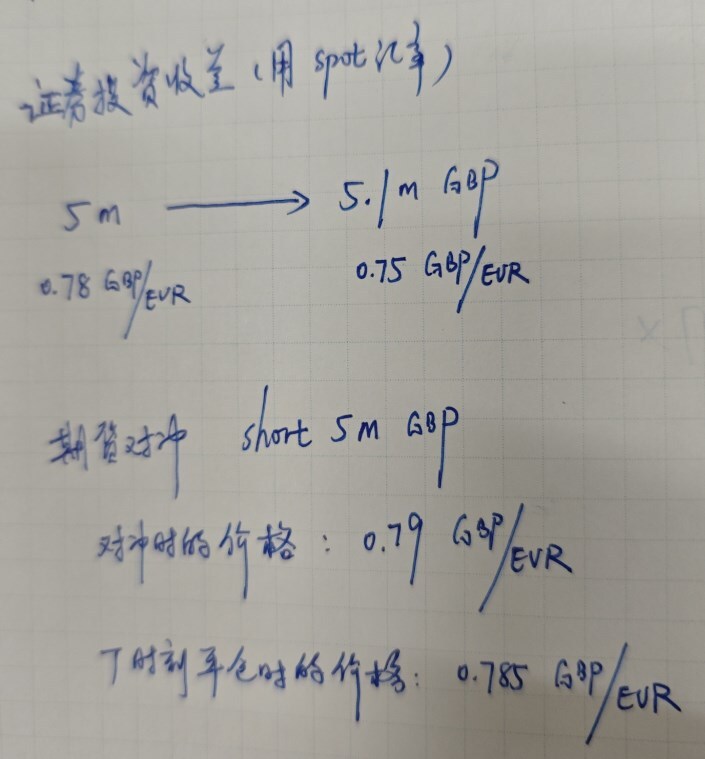 证券投资收益(用 spot 汇率)
5 m → 5.1 m GBP
0.78 GBP/EUR 0.75 GBP/EUR
期货对冲 short 5 m GBP
对冲时的价格: 0.79 GBP/EUR
T时刻平仓时的价格: 0.785 GBP/EUR